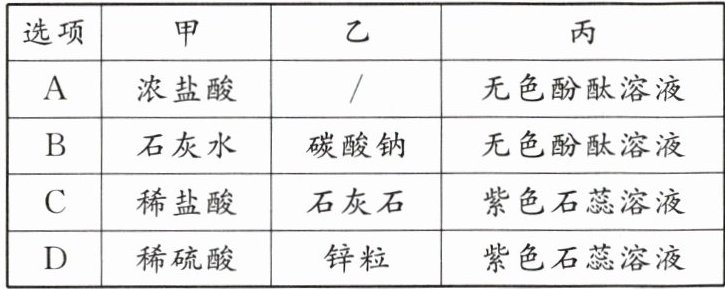 选项 甲 乙 丙
A 浓盐酸 / 无色酚酞溶液
B 石灰水 碳酸钠 无色酚酞溶液
C 稀盐酸 石灰石 紫色石蕊溶液
D 稀硫酸 锌粒 紫色石蕊溶液